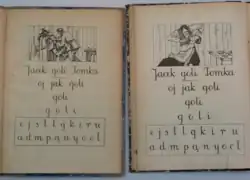 Jacek goli Tomka
oj jak goli
goli
g o l i
e j s t l g k i r u
a d m p ą n y o c ł
Jacek goli Tomka
oj jak goli
goli
g o l i
e j s t l g k i r u
a d m p ą n y o c ł